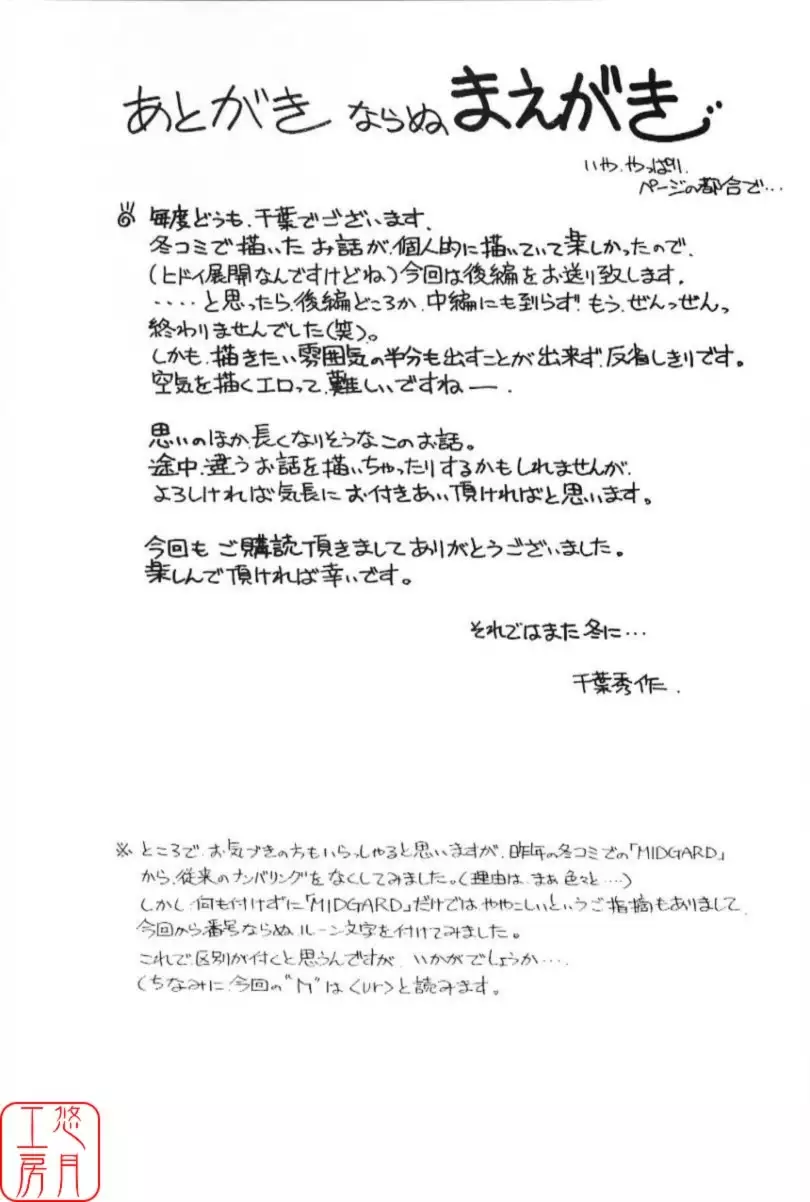 あとがき ならぬ、まえがき
いや、やっぱり、
ページの都合で…
毎度どうも、千葉でございます。
冬コミで描いたお話が、個人的に描いていて楽しかったので、
(ヒドイ展開なんですけどね)今回は後編をお送り致します。
‥‥と思ったら、後編どころか、中編にも到らず、もう、ぜんっぜんっ
終わりませんでした(笑)。
しかも、描きたい雰囲気の半分も出すことが出来ず、反省しきりです。
空気を描くエロって、難しいですねー。
思いのほか、長くなりそうなこのお話。
途中、違うお話を描いちゃったりするかもしれませんが、
よろしければ気長にお付きあい頂ければと思います。
今回もご購読頂きましてありがとうございました。
楽しんで頂ければ幸いです。
それではまた冬に…
千葉秀作.
※ ところで、お気づきの方もいらっしゃると思いますが、昨年の冬コミでの「MIDGARD」
から、従来のナンバリングをなくしてみました。(理由は、まぁ色々と‥‥)
しかし、何も付けずに「MIDGARD」だけではややこしいというご指摘もありまして、
今回から番号ならぬ、ルーン文字を付けてみました。
これで区別が付くと思うんですが、いかがでしょうか‥‥
(ちなみに、今回の“ᚢ”は<ur>と読みます。
悠月工房